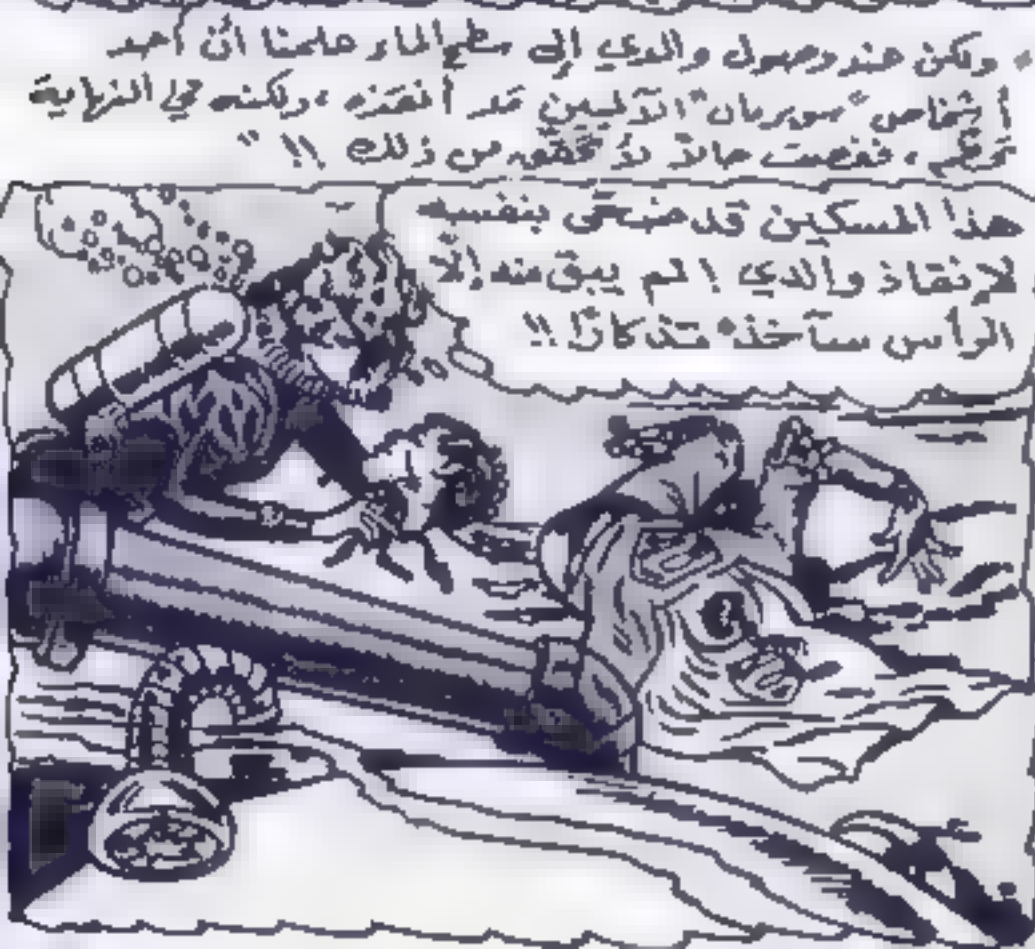 ولكن عند وصول والدي إلى سطح الماء علمنا أن أحد
أشخاص "سوبرمان" الآليين قد أنقذه ، ولكنه في النهاية
تحطم ، فغصت حالاً لأتحقق من ذلك !! "
هذا المسكين قد ضحّى بنفسه
لإنقاذ والدي ! لم يبق منه إلّا
الرأس سآخذه تذكارًا !!